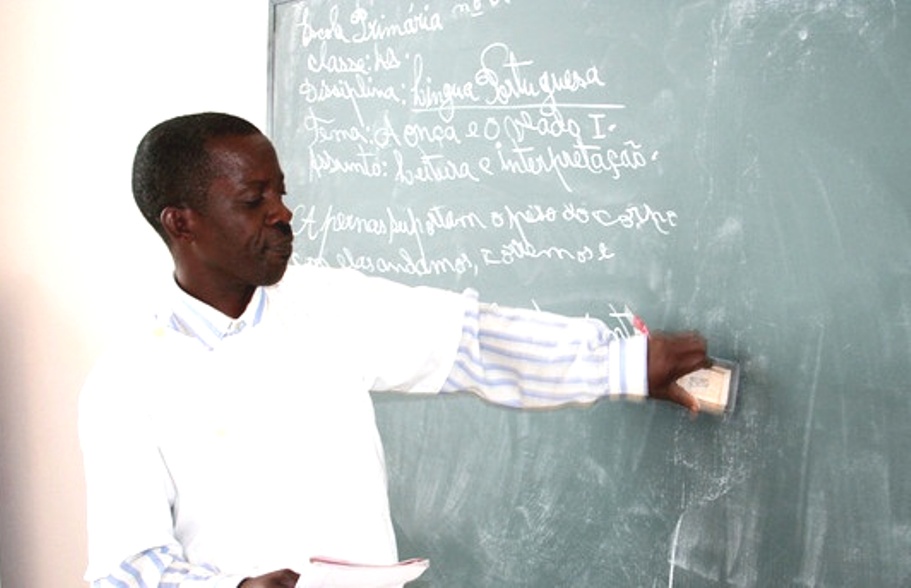 Escola Primária nº
classe:
Disciplina: Língua Portuguesa
Tema: A onça e o veado I.
Assunto: Leitura e interpretação.
A pernas suportam o peso do corpo
com elas andamos, corremos e